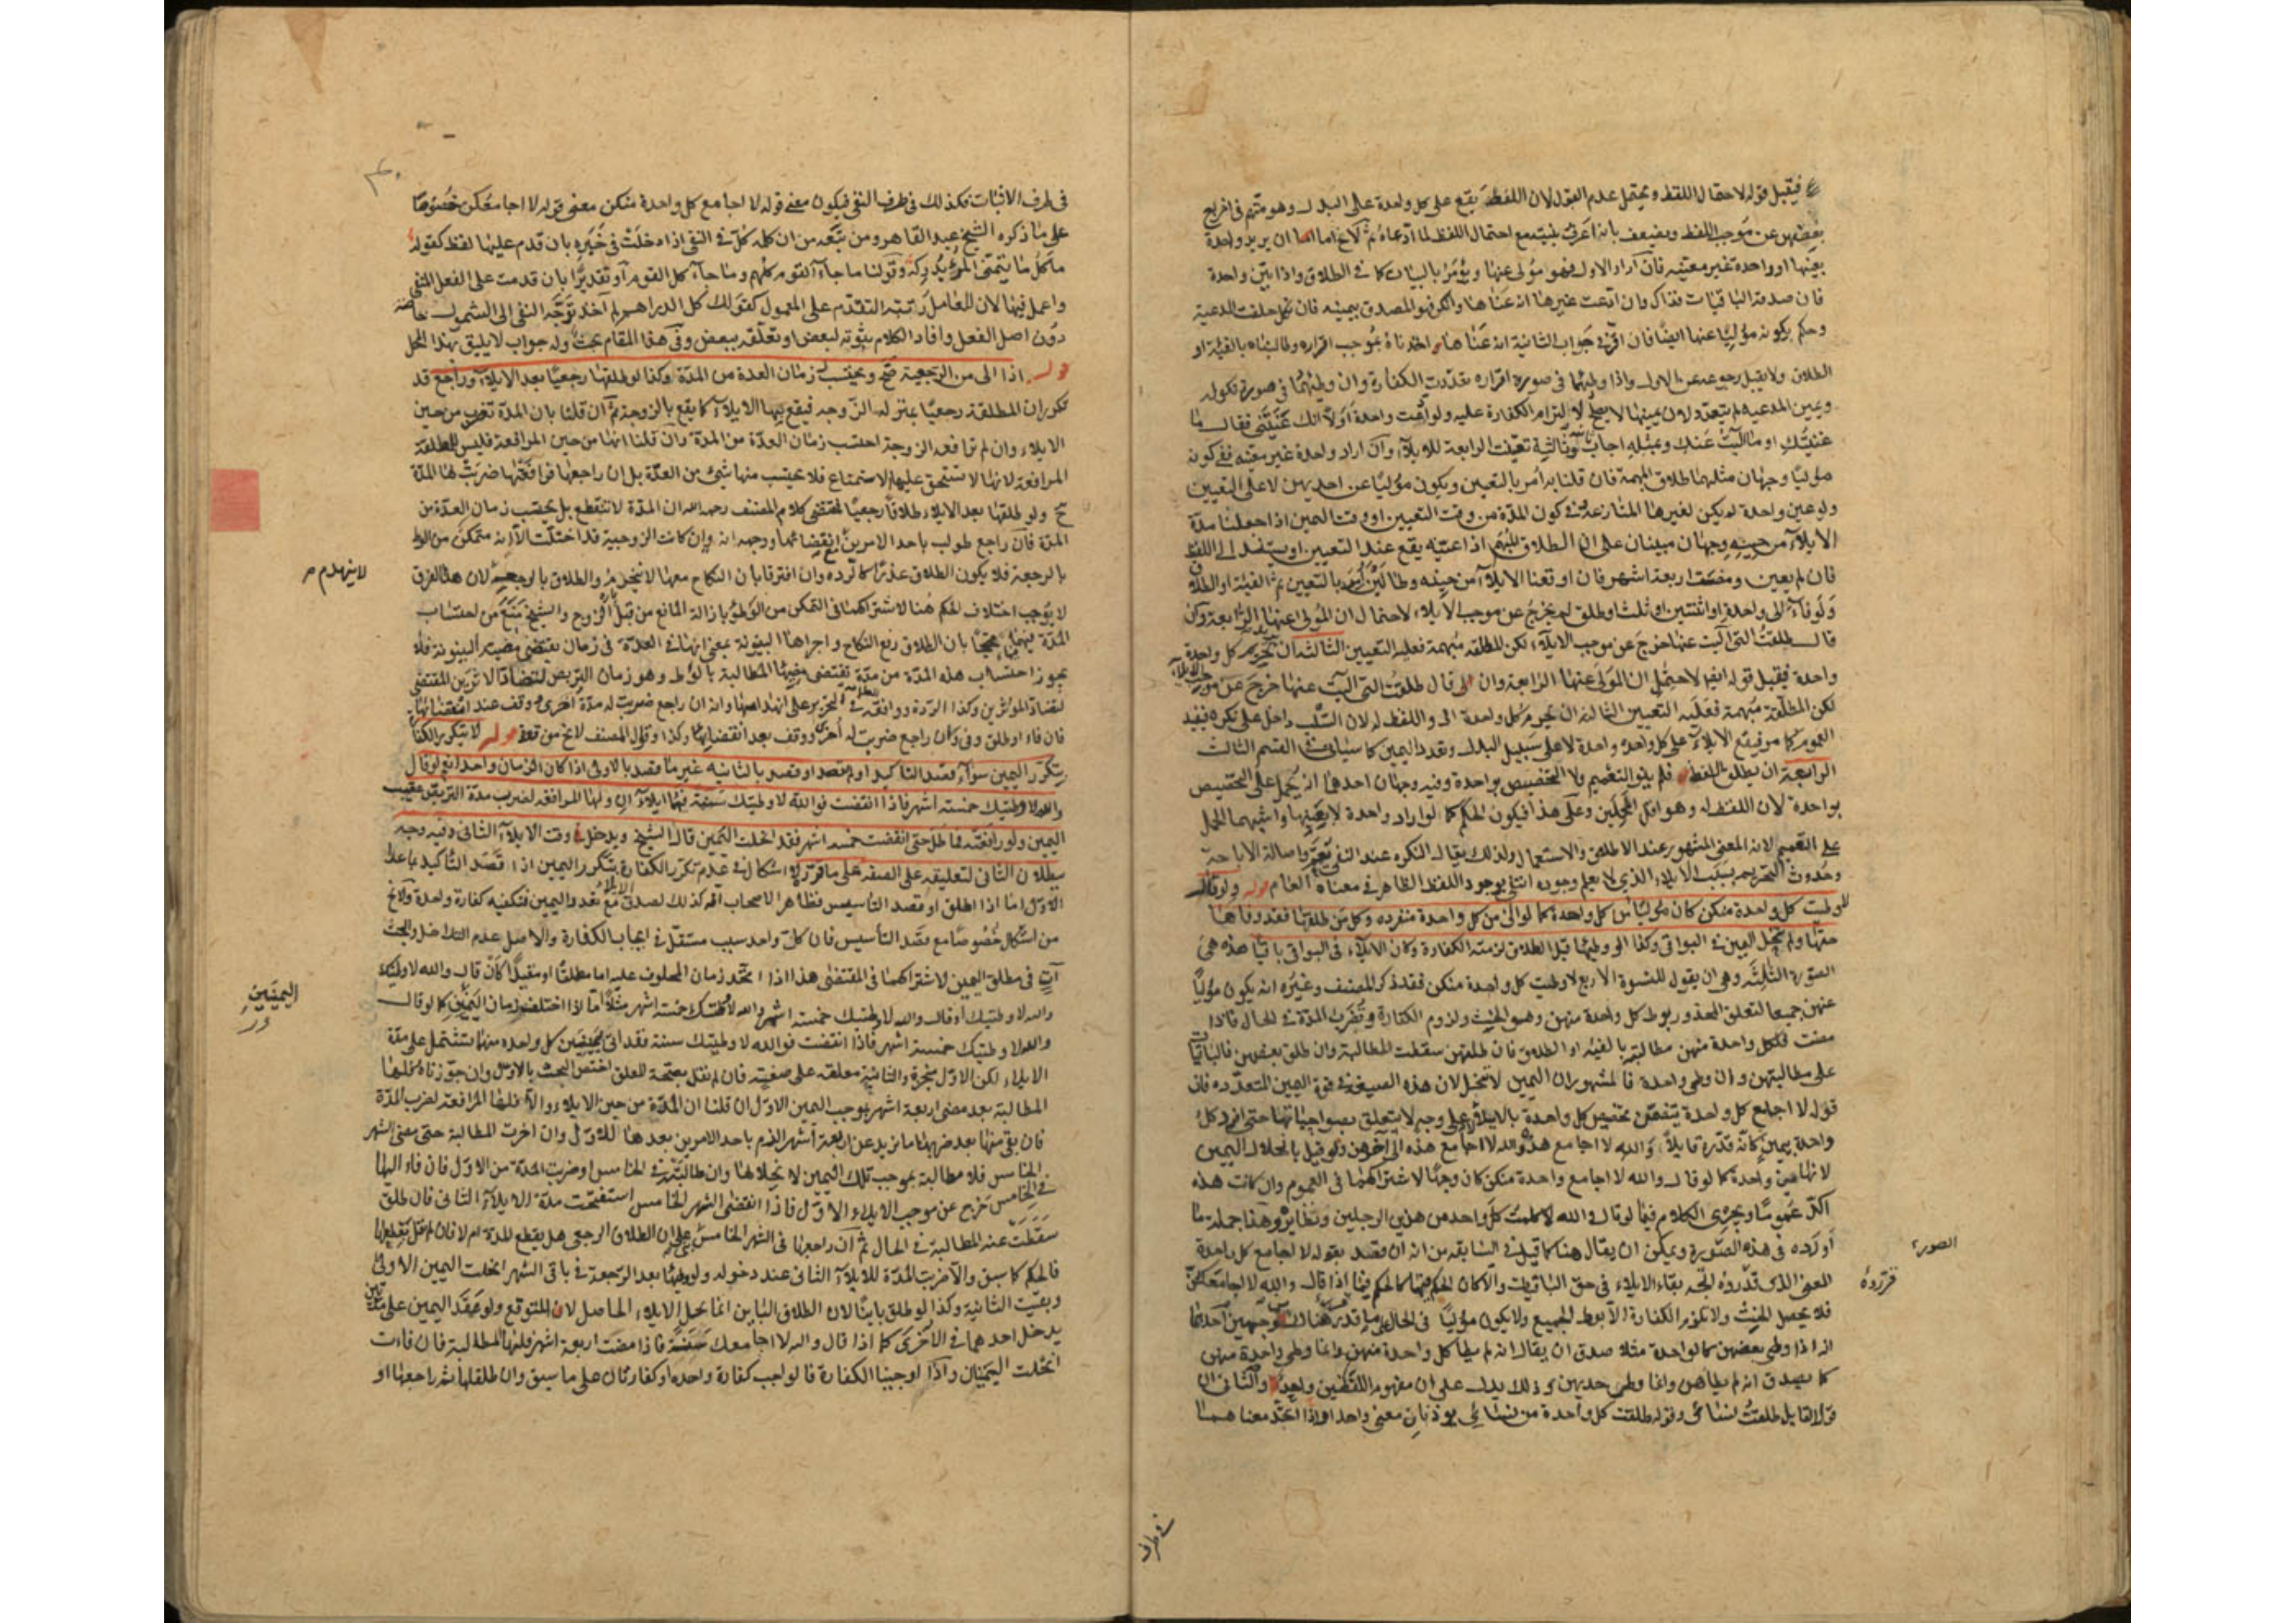 فيقبل قوله لاحتمال اللفظ ويحتمل عدم القبول لان اللفظ يقع على كل واحدة على البدل وهو متهم في اخراج
بعضهن عن موجب اللفظ ويضعف بانه اعرف بنيته مع احتمال اللفظ لما ادعاه ثم لا يخ اما ان يريد واحدة
بعينها او واحدة غير معينه فان اراد الاول فهو مولى عنها ويؤمر بالبيان كما في الطلاق واذا بين واحدة
فان صدقه الباقيات فذاك وان ادعت غيرها انه عناها وانكر فهو المصدق بيمينه فان نكل حلفت المدعية
وحكم بكونه موليا عنها ايضا فان اقر في جواب الثانية انه عناها واخذناه بموجب اقراره وطالبناه بالفيئة او
الطلاق ولا يقبل رجوعه عن الاول واذا وطئهما في صورة اقراره تعددت الكفارة وان وطئهما في صورة نكوله
ويمين المدعيه لم يتعدد لان يمينها لا يصلح لالتزام الكفارة عليه ولو ادعت واحدة اولا انك عنيتني فقال ما
عنيتك او ما اليت عنك وبمثله اجاب ثانية وثالثة تعينت الرابعة للايلاء وان اراد واحدة غير معينه ففي كونه
موليا وجهان مثلهما طلاق المبهمة فان قلنا به امر بالتعيين ويكون موليا عن احديهن لا على التعيين
ولو عين واحدة لم يكن لغيرها المنازعة وفي كون المدة من وقت التعيين او وقت اليمين اذا جعلنا مدة
الايلاء من حينه وجهان مبنيان على ان الطلاق المبهم اذا عينه يقع عند التعيين او يستند الى اللفظ
فان لم يعين ومضت اربعة اشهر فان اوقعنا الايلاء من حينه وطالبن امر بالتعيين ثم الفيئة او الطلاق
ولو فاء الى واحدة او اثنتين او ثلث او طلق لم يخرج عن موجب الايلاء لاحتمال ان المولى عنها الرابعة وان
قال طلقت التي اليت عنها خرج عن موجب الايلاء لكن المطلقه مبهمة فعليه التعيين الثالثة ان يريد تحريم كل واحدة
واحدة فيقبل قوله ايضا لاحتمال ان المولى عنها الرابعة وان قال طلقت التي اليت عنها خرج عن موجب الايلاء
لكن المطلقة مبهمة فعليه التعيين الثالثة ان يحرم كل واحدة واللفظ له لان السلب داخل على نكرة فيفيد
العموم كما مر فيقع الايلاء على كل واحدة واحدة لا على سبيل البدل وتعدد اليمين كما سياتي في القسم الثالث
الرابعة ان يطلق اللفظ فلم ينو التعميم ولا التخصيص بواحدة وفيه وجهان احدهما انه يحمل على التخصيص
بواحدة لان اللفظ له وهو اقل المحملين وعلى هذا فيكون الحكم كما لو اراد واحدة لا بعينها واشبههما الحمل
على التعميم لانه المعنى المشهور عند الاطلاق والاستعمال ولذلك يقال النكره عند النفي تعم واصالة الاباحة
وحدوث التحريم بسبب الايلاء الذي لا يعلم وجوده انتفى بوجود اللفظ الظاهر في معناه العام قوله ولو قال
لا وطيت كل واحدة منكن كان موليا من كل واحدة كما لو الى من كل واحدة منفرده وكل من طلقها فقد وفاها
حقها ولم ينحل اليمين في البواقي وكذا لو وطئها قبل الطلاق لزمته الكفارة وكان الايلاء في البواقي باقيا هذه هي
الصورة الثالثة وهي ان يقول للنسوة الاربع لا وطيت كل واحدة منكن فقد ذكر المصنف وغيره انه يكون موليا
عنهن جميعا لتعلق المحذور بوطئ كل واحدة منهن وهو الحنث ولزوم الكفارة وتضرب المدة في الحال فاذا
مضت فلكل واحدة منهن مطالبته بالفيئه او الطلاق فان طلقهن سقطت المطالبة وان طلق بعضهن فالباقيات
على مطالبتهن وان وطى واحدة فالمشهور ان اليمين لا تنحل لان هذه الصيغة في قوة اليمين المتعدده فان
قوله لا اجامع كل واحدة يتضمن تخصيص كل واحدة بالايلاء على وجه لا يتعلق بصواحباتها حتى افرد كل
واحدة بيمين كانه قدره قايلا والله لا اجامع هذه والله لا اجامع هذه الى آخرهن ولو قيل بانحلال اليمين
لانها يمين واحدة كما لو قال والله لا اجامع واحدة منكن كان وجها لاشتراكهما في العموم وان كانت هذه
اكد عموما ويجري الكلام فيما لو قال والله لا كلمت كل واحد من هذين الرجلين ونظائره وهذا جملة ما
اورده في هذه الصورة ويمكن ان يقال هنا كما قيل في السابقه من انه ان قصد بقوله لا اجامع كل واحدة
المعنى الذي قدروه اتجه بقاء الايلاء في حق الباقيات والا كان الحكم فيها كالحكم فيما اذا قال والله لا اجامعكن
فلا يحصل الحنث ولا تلزم الكفارة الا بوطئ الجميع ولا يكون موليا في الحال على ما قدر هناك لوجهين احدهما
انه اذا وطى بعضهن كالواحدة مثلا صدق ان يقال انه لم يطا كل واحدة منهن وانما وطى واحدة منهن
كما يصدق انه لم يطاهن وانما وطى احديهن وذلك يدل على ان مفهوم اللفظين واحد والثاني ان
قول القايل طلقت نسائي وقوله طلقت كل واحدة من نسائي يوديان معنى واحدا واذا اتحد معناهما
الصور
قرروه
في طرف
في طرف الاثبات فكذلك في طرف النفي فيكون معنى قوله لا اجامع كل واحدة منكن معنى قوله لا اجامعكن خصوصا
على ما ذكره الشيخ عبد القاهر ومن تبعه من ان كلمة كل في النفي اذا دخلت في خبره بان قدم عليها لفظا كقوله
ما كل ما يتمنى المرء يدركه وقولنا ما جاء القوم كلهم وما جاء كل القوم او تقديرا بان قدمت على الفعل المنفي
واعمل فيها لان العامل رتبته التقدم على المعمول كقولك كل الدراهم لم آخذ توجه النفي الى الشمول خاصة
دون اصل الفعل وافاد الكلام ثبوته لبعض او تعلقه ببعض وفي هذا المقام بحث وله جواب لا يليق بهذا المحل
قوله اذا الى من الرجعية صح ويحتسب زمان العدة من المدة وكذا لو طلقها رجعيا بعد الايلاء وراجع قد
تكرر ان المطلقة رجعيا بمنزلة الزوجه فيقع بها الايلاء كما يقع بالزوجة ثم ان قلنا بان المدة تضرب من حين
الايلاء وان لم ترافعه الزوجة احتسب زمان العدة من المدة وان قلنا انها من حين المرافعة فليس للمطلقة
المرافعة لانها لا تستحق عليه الاستمتاع فلا يحتسب منها شيء من العدة بل ان راجعها فرافعتها ضربت لها المدة
ح ولو طلقها بعد الايلاء طلاقا رجعيا فمقتضى كلام المصنف رحمه الله ان المدة لا تنقطع بل يحتسب زمان العدة من
المدة فان راجع طولب باحد الامرين بانقضائها ووجهه انه وان كانت الزوجية قد اختلت الا انه متمكن من الوطئ
بالرجعة فلا يكون الطلاق عذرا كالردة وان افترقا بان النكاح معها لا ينخرم والطلاق بالرجعية لان هذا الفرق
لا يوجب اختلاف الحكم هنا لاشتراكهما في التمكن من الوطئ بازالة المانع من قبل الزوج والشيخ منع من احتساب
المدة فيهما محتجا بان الطلاق رفع النكاح واجراها الى البينونة بمعنى انها في العدة في زمان يقتضي مضيه البينونة فلا
يجوز احتساب هذه المدة من مدة يقتضي مضيها المطالبة بالوطئ وهو زمان التربص لتضاد الاثرين المقتضي
لتضاد المؤثرين وكذا الردة ووافقه العلامة في التحرير على انهدامها وانه ان راجع ضربت له مدة اخرى ووقف عند انقضائها
فان فاء او طلق وفى وان راجع ضربت له اخرى ووقف بعد انقضائها وكذا وقول المصنف لا يخ من قوة قوله لا يتكرر الكفارة
بتكرر اليمين سواء قصد التاكيد او لم يقصد او قصد بالثانيه غير ما قصد بالاولى اذا كان الزمان واحدا نعم لو قال
والله لا وطيتك خمسة اشهر فاذا انقضت فوالله لا وطيتك سنة فهما ايلاءان ولها المرافعه لضرب مدة التربص عقيب
اليمين ولو رافعته فماطل حتى انقضت خمسه اشهر فقد انحلت اليمين قال الشيخ ويدخل في وقت الايلاء الثاني وفيه وجه
ببطلان الثاني لتعليقه على الصفة على ما قرره لا اشكال في عدم تكرر الكفارة بتكرر اليمين اذا قصد التاكيد بما عدا
الاول اما اذا اطلق او قصد التاسيس فظاهر الاصحاب انه كذلك لصدق الايلاء مع تعدد اليمين فتكفيه كفارة واحدة ولا يخ
من اشكال خصوصا مع قصد التأسيس فان كل واحد سبب مستقل في ايجاب الكفارة والاصل عدم التداخل والبحث
آت في مطلق اليمين لاشتراكهما في المقتضى هذا اذا اتحد زمان المحلوف عليه اما مطلقا او مقيدا كان قال والله لا وطيتك
والله لا وطيتك او قال والله لا وطيتك خمسة اشهر والله لا وطيتك خمسة اشهر مثلا اما اذا اختلف زمان اليمين كما لو قال
والله لا وطيتك خمسة اشهر فاذا انقضت فوالله لا وطيتك سنة فقد اتى بيمينين كل واحدة منهما تشتمل على مدة
الايلاء لكن الاول منجزة والثانية معلقه على صفة فان لم نقل بصحة المعلق اختص البحث بالاول وان جوزناه فلها
المطالبة بعد مضي اربعة اشهر بموجب اليمين الاول ان قلنا ان المدة من حين الايلاء والا فلها المرافعة لضرب المدة
فان بقي منها بعد ضربها ما يزيد عن اربعة اشهر الزم باحد الامرين بعدها للاول وان اخرت المطالبة حتى مضى الشهر
الخامس فلا مطالبة بموجب تلك اليمين لانحلالها وان طالبته في الخامس او ضربت المدة من الاول فان فاء اليها
في الخامس خرج عن موجب الايلاء الاول فاذا انقضى الشهر الخامس استفتحت مدة الايلاء الثاني فان طلق
سقطت عنه المطالبة في الحال ثم ان راجعها في الشهر الخامس بني على ان الطلاق الرجعي هل يقطع المدة ام لا فان لم نقل بقطعها
فالحكم كما سبق والا ضربت المدة للايلاء الثاني عند دخوله ولو وطئها بعد الرجعة في باقي الشهر انحلت اليمين الاولى
وبقيت الثانية وكذا لو طلق باينا لان الطلاق الباين انما يحل الايلاء الحاصل لا المتوقع ولو عقد اليمين على مدتين
يدخل احدهما في الاخرى كما اذا قال والله لا اجامعك سنة فاذا مضت اربعة اشهر فلها المطالبة فان فاءت
انحلت اليمينان واذا اوجبنا الكفارة فالواجب كفارة واحدة او كفارتان على ما سبق وان طلقها ثم راجعها او
لا ينهدم
اليمينين